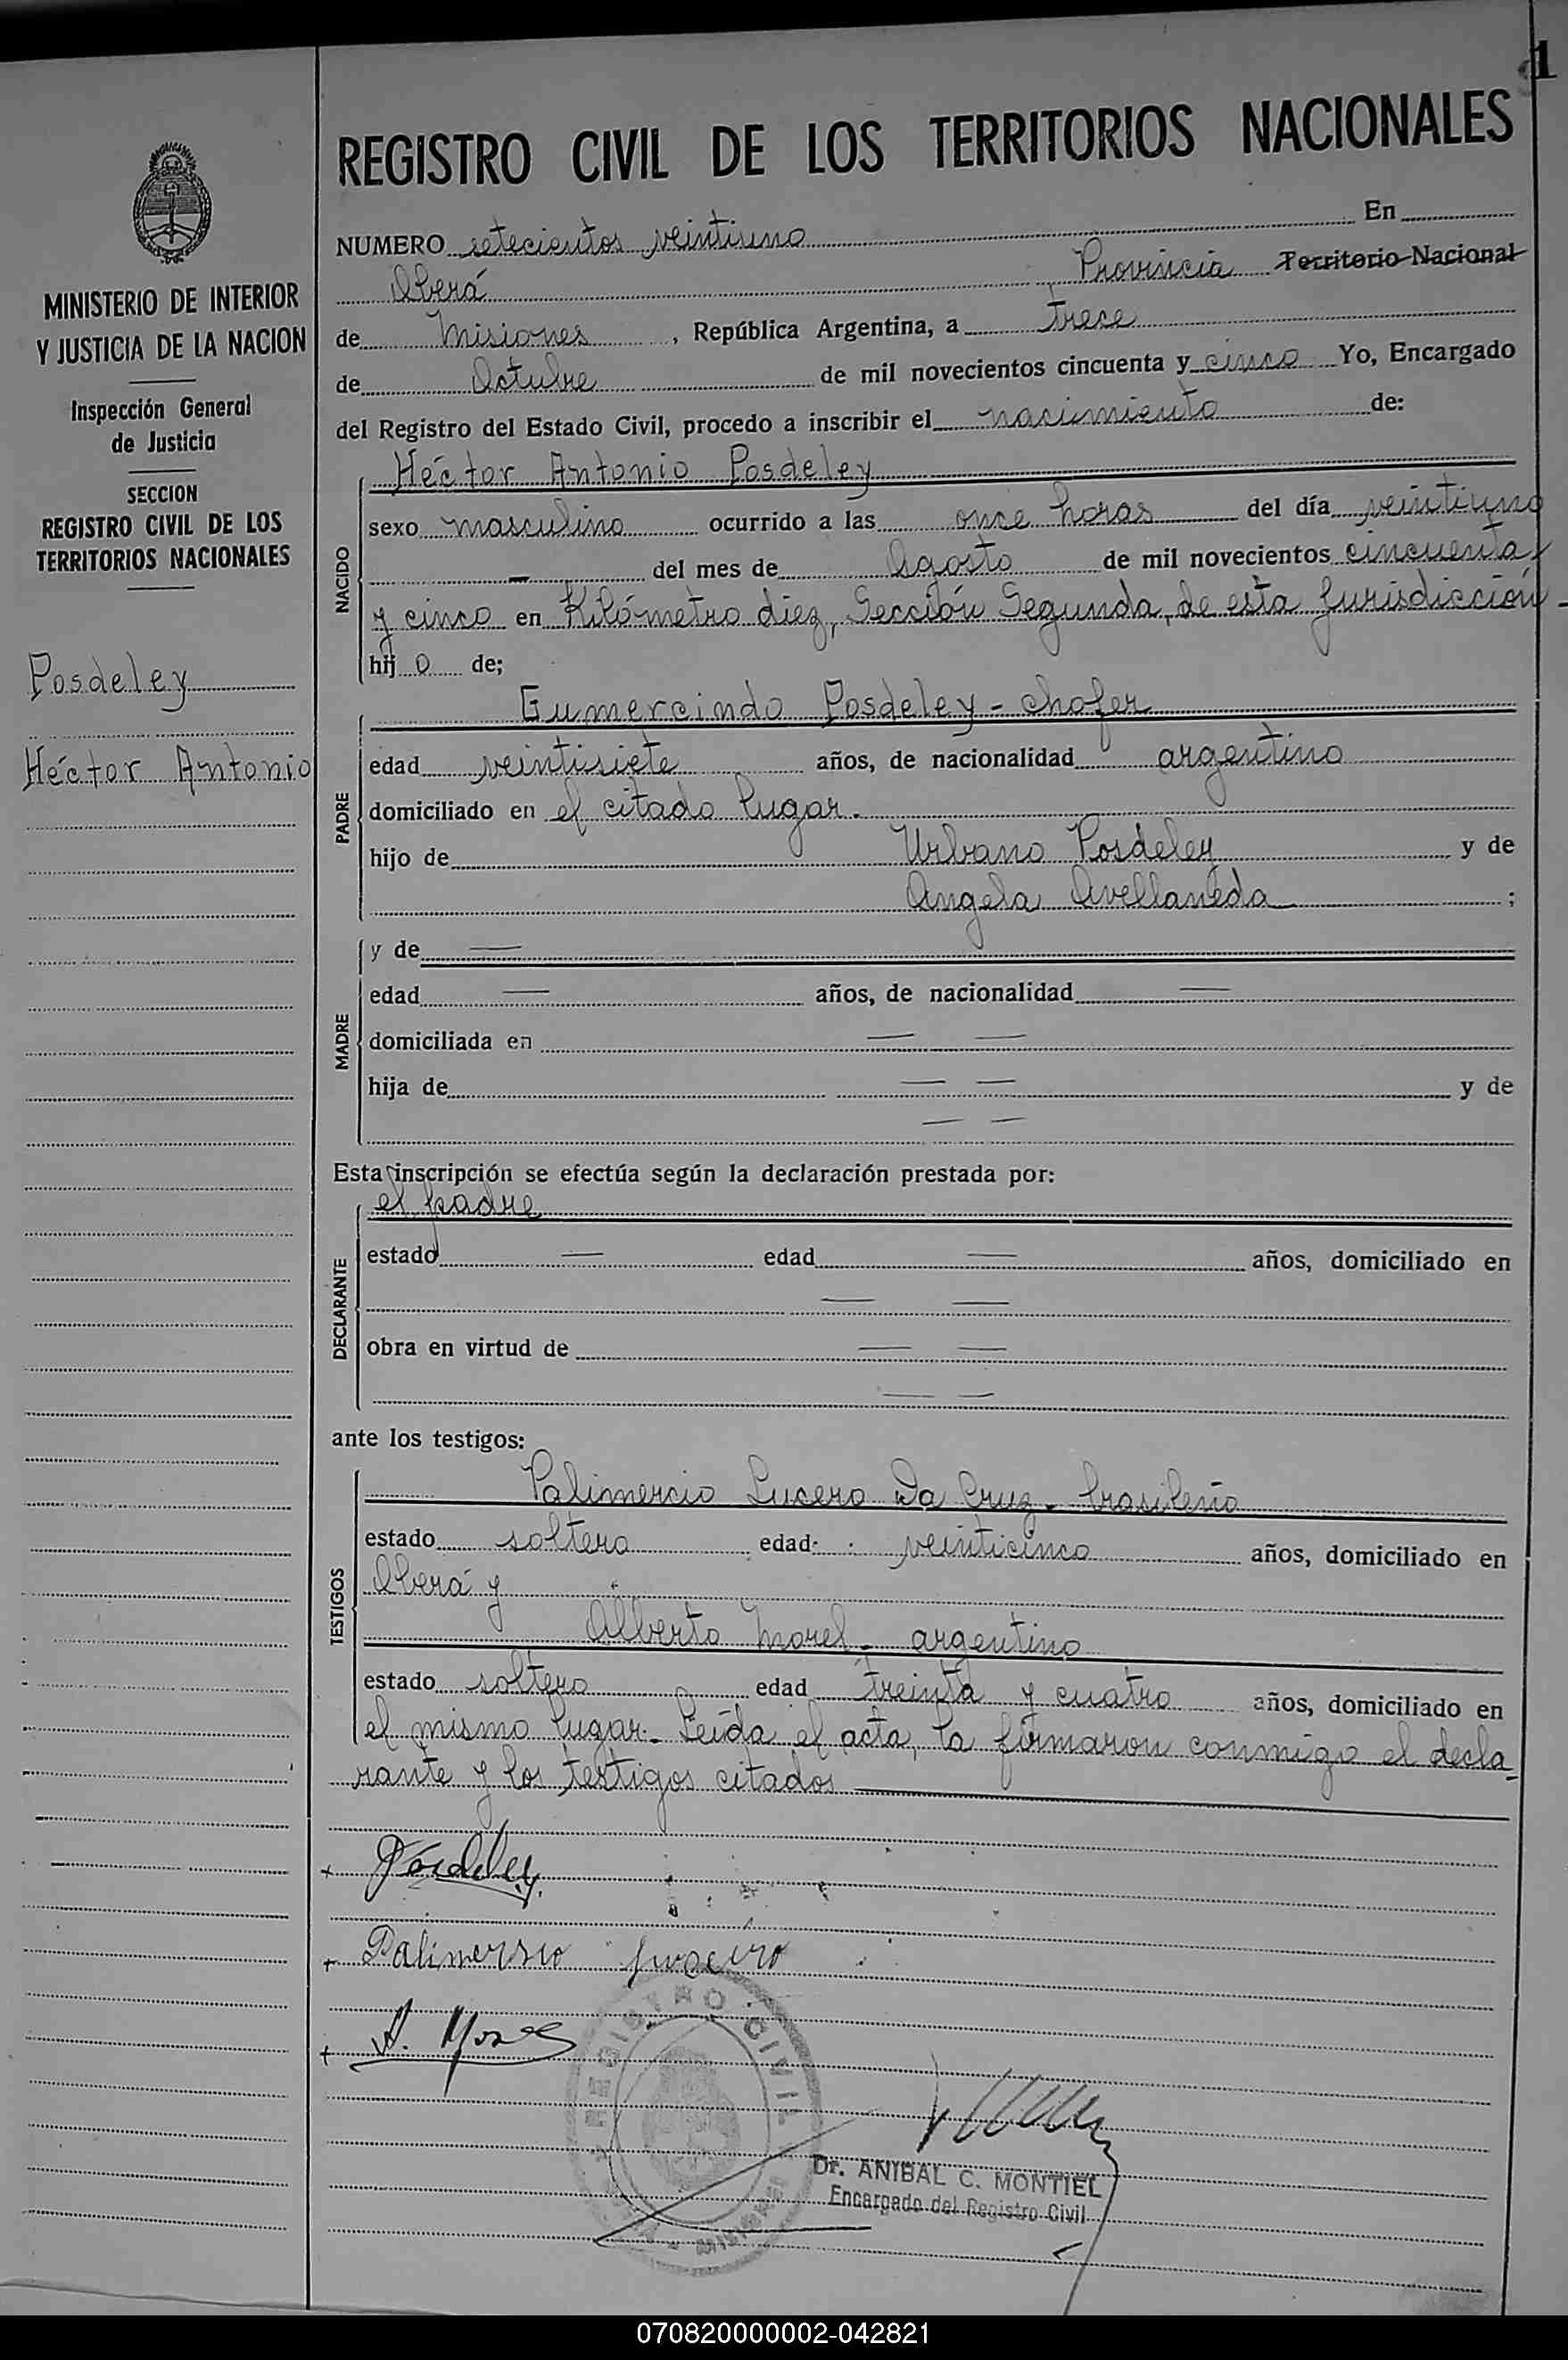 1
REGISTRO CIVIL DE LOS TERRITORIOS NACIONALES
MINISTERIO DE INTERIOR
Y JUSTICIA DE LA NACION
Inspección General
de Justicia
SECCION
REGISTRO CIVIL DE LOS
TERRITORIOS NACIONALES
Posdeley
Héctor Antonio
NUMERO setecientos veintiuno En
Oberá Provincia Territorio Nacional
de Misiones, República Argentina, a trece
de Octubre de mil novecientos cincuenta y cinco Yo, Encargado
del Registro del Estado Civil, procedo a inscribir el nacimiento de:
NACIDO
Héctor Antonio Posdeley
sexo masculino ocurrido a las once horas del día veintiuno
— del mes de Agosto de mil novecientos cincuenta
y cinco en Kilómetro diez, Sección Segunda, de esta Jurisdicción-
hijo de;
PADRE
Gumercindo Posdeley - chofer
edad veintisiete años, de nacionalidad argentino
domiciliado en el citado lugar.
hijo de Urbano Posdeley y de
Angela Avellaneda ;
MADRE
y de —
edad — años, de nacionalidad —
domiciliada en — —
hija de — — y de
— —
Esta inscripción se efectúa según la declaración prestada por:
DECLARANTE
el padre
estado — edad — años, domiciliado en
— —
obra en virtud de — —
— —
ante los testigos:
TESTIGOS
Palimercio Lucero Da Cruz - brasileño
estado soltero edad veinticinco años, domiciliado en
Oberá y
Alberto Morel - argentino
estado soltero edad treinta y cuatro años, domiciliado en
el mismo lugar.- Leída el acta, la firmaron conmigo el decla-
rante y los testigos citados
+ Posdeley
+ Palimersio
+ A. Morel
REGISTRO CIVIL
Dr. ANIBAL C. MONTIEL
Encargado del Registro Civil
070820000002-042821